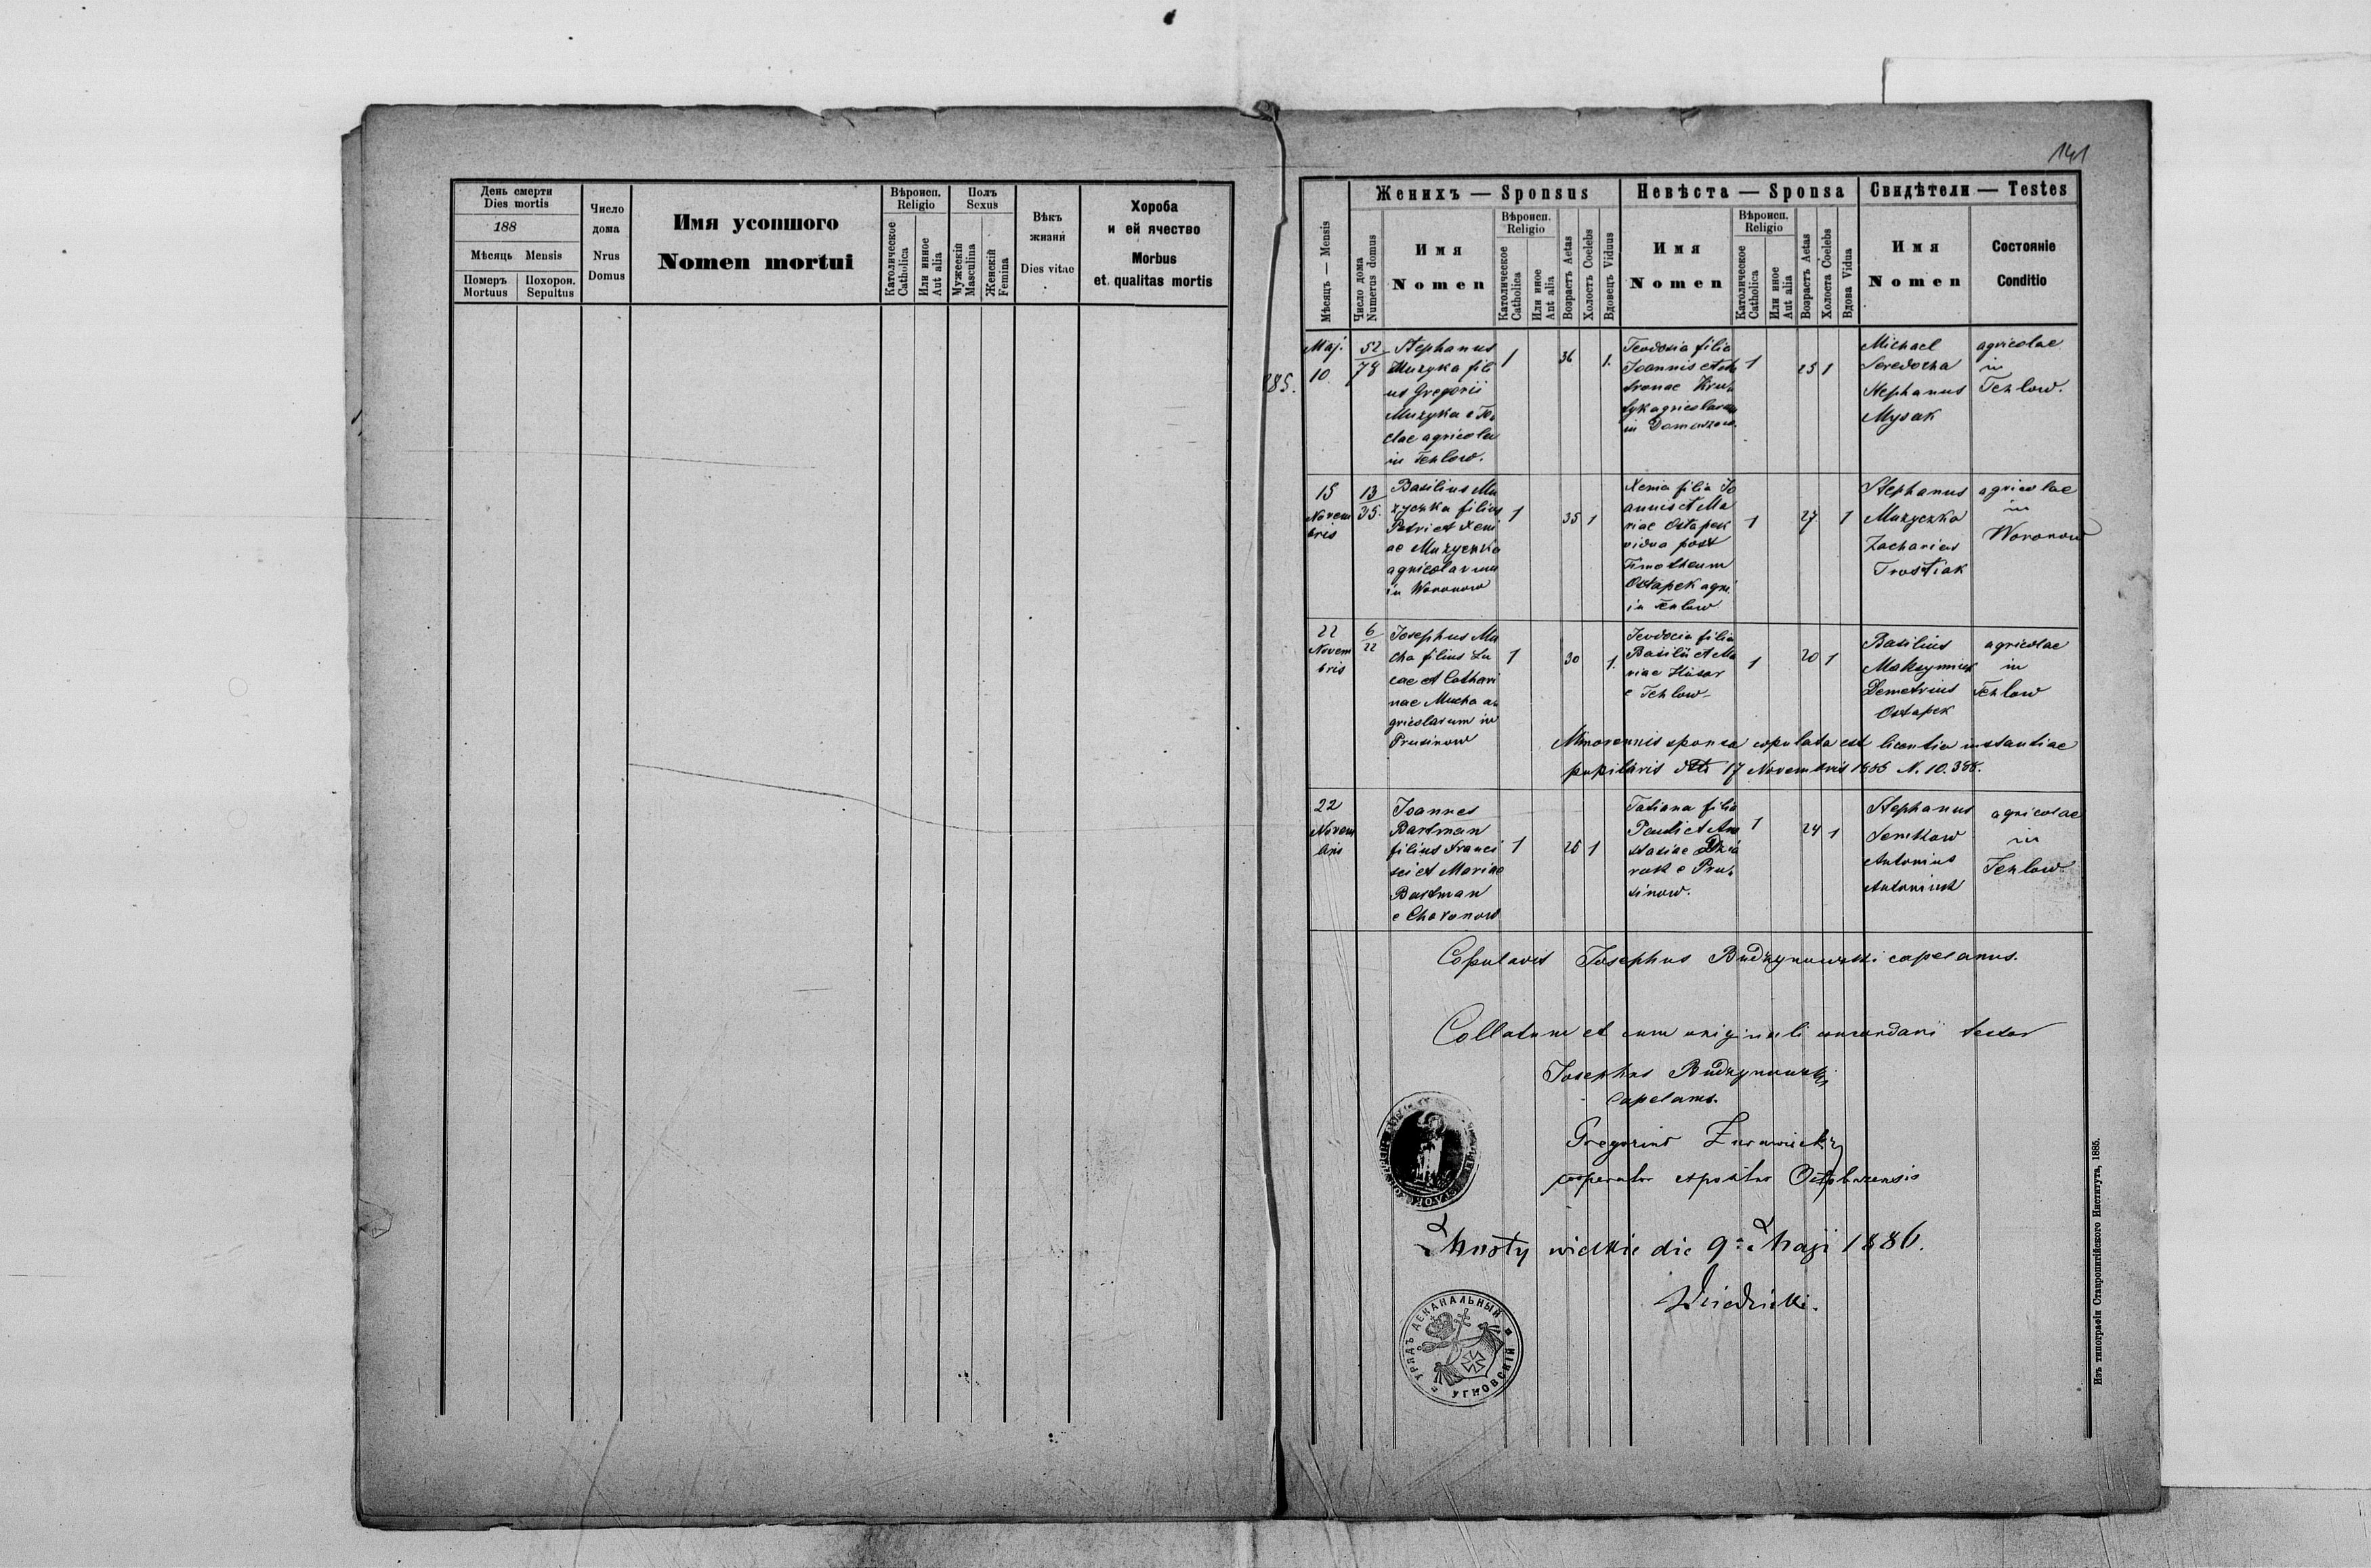 День смерти
Dies mortis
188
Мѣсяць Mensis
Померъ
Mortuus
Похорон.
Sepultus
Число
дома
Nrus
Domus
Имя усопшого
Nomen mortui
Вѣроисп.
Religio
Католическое
Catholica
Или инное
Aut alia
Полъ
Sexus
Мужескій
Masculina
Женскій
Femina
Вѣкъ
жизни
Dies vitae
Хороба
и ей ячество
Morbus
et qualitas mortis
141
Мѣсяцъ — Mensis
Женихъ — Sponsus
Число дома
Numerus domus
Имя
Nomen
Вѣроисп.
Religio
Католическое
Catholica
Или иное
Aut alia
Возрастъ Aetas
Холостъ Coelebs
Вдовецъ Viduus
Невѣста — Sponsa
Имя
Nomen
Вѣроисп.
Religio
Католическое
Catholica
Или иное
Aut alia
Возрастъ Aetas
Холоста Coelebs
Вдова Vidua
Свидѣтели — Testes
Имя
Nomen
Состояніе
Conditio
885.
Maj.
10
52
78
Stephanus
Muzyka fili
us Gregorii
Muzyka e
clae agricola
in Tehlow.
1
36
1.
Teodosia filia
Joannis et
tronae
in
1
23
1
Michael
Seredocha
Stephanus
Mysak
agricolae
in
Tehlow.
15
Novem
bris
13
35.
Basilius Mu
zyczka filius
Petri et Xeni
ae Muzyczka
agricolarum
in Woronow
1
35
1
Xenia filia Jo
annis et Ma
riae Ostapek
vidua post
Timotheum
Ostapek agri.
in Tehlow
1
27
1
Stephanus
Muzyczka
Zacharias
Trostiak
agricolae
in
Woronow
22
Novem
bris
6
22
Josephus Mu
cha filius Lu
cae et Cathari
nae Mucha a
gricolarum in
Prusinow
1
30
1.
Teodosia filia
Basilii et Ma
riae Husar
e Tehlow
1
20
1
Basilius
Maksymiuk
Demetrius
Ostapek
agricolae
in
Tehlow
Minorennis sponsa copulata est licentia instantiae
pupilaris dtti 17 Novembris 1885 N. 10.388.
22
Novem
bris
Joannes
Bartman
filius Franci
sci et Mariae
Bartman
e Choronow
1
26
1
Tatiana filia
Pauli et Ana
stasiae
e Pru
sinow.
1
24
1
Stephanus
Semkow
Antonius
Antoniuk
agricolae
in
Tehlow
Copulavit Josephus Budzynowski capelanus.
Collatum et cum originali concordari testor
Josephus Budzynowski
Capelanus.
Gregorius Zurawiecki
cooperator
Mosty wielkie die 9 Maji 1886.
УРЯДЪ ДЕКАНАЛЬНЫЙ
УГНОВСКІЙ
Изъ типографіи Ставропигійского Института, 1885.